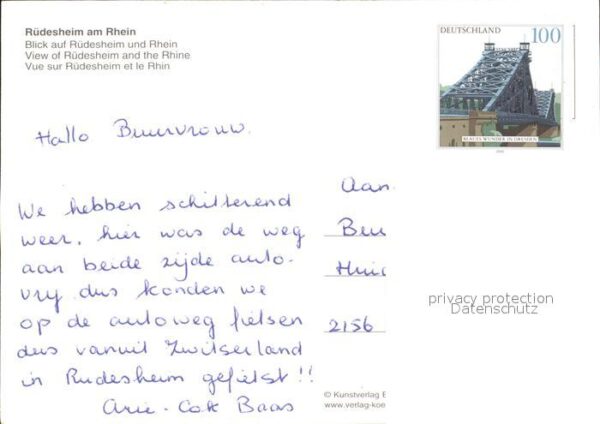 Rüdesheim am Rhein
Blick auf Rüdesheim und Rhein
View of Rüdesheim and the Rhine
Vue sur Rüdesheim et le Rhin
DEUTSCHLAND 100
BLAUES WUNDER IN DRESDEN
Hallo Buurvrouw.
We hebben schitterend
weer, hier was de weg
aan beide zijde auto-
vrij dus konden we
op de autoweg fietsen
dus vanuit Zwitserland
in Rudesheim gefietst!!
Arie-Cok Baas
Aan
2156
privacy protection
Datenschutz
© Kunstverlag E
www.verlag-koe